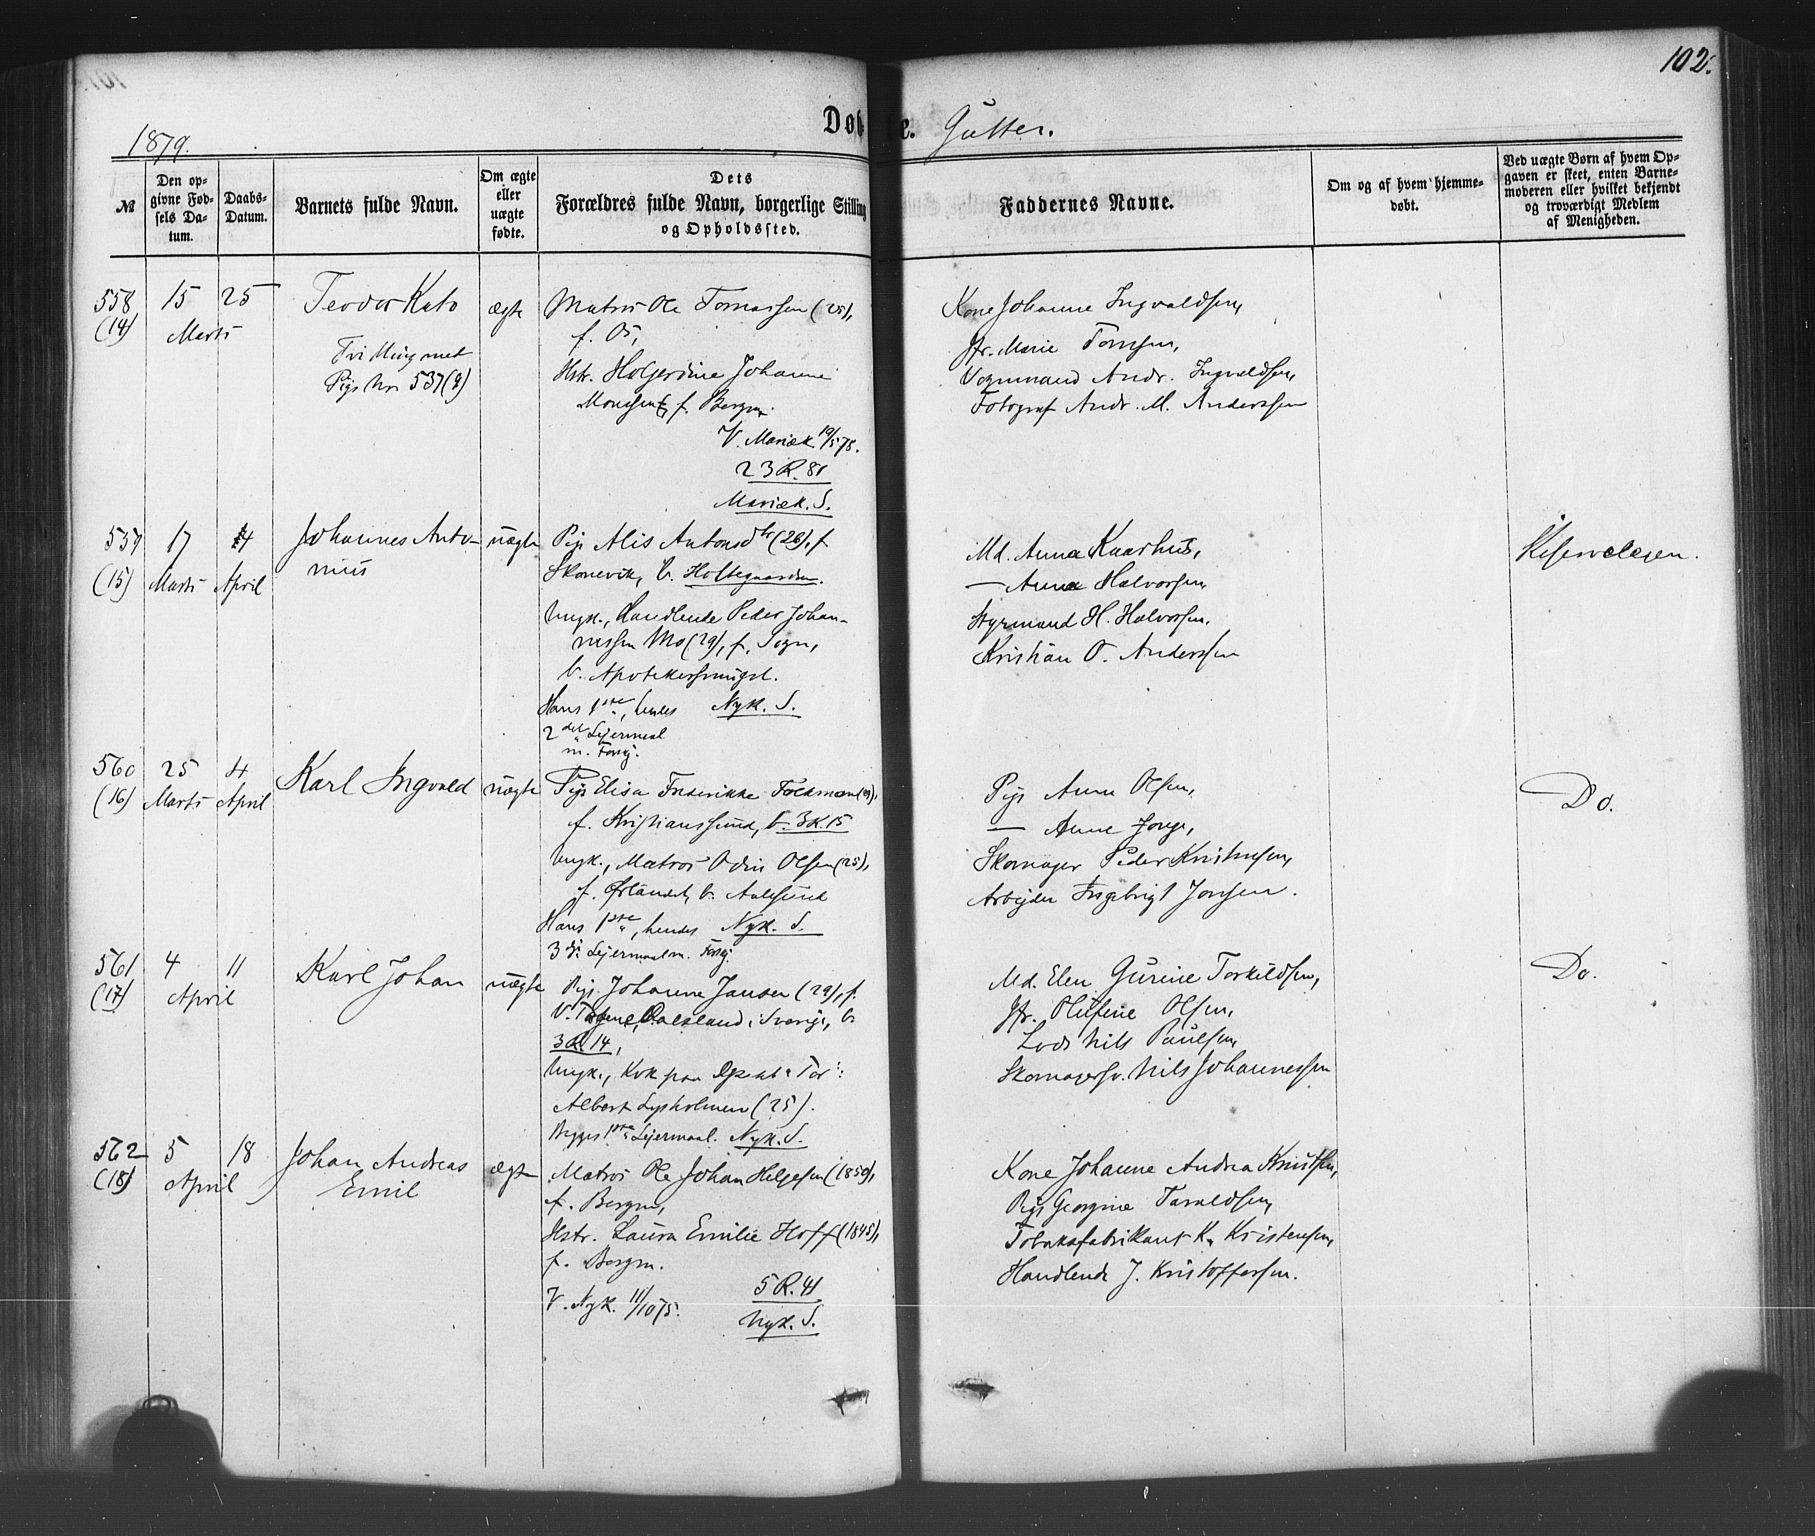 102.
1879.
Døb e. Gutter.
№
Den opgivne Fødsels Datum.
Daabs-Datum.
Barnets fulde Navn.
Om ægte eller uægte fødte.
Dets Forældres fulde Navn, borgerlige Stilling og Opholdssted.
Faddernes Navne.
Om og af hvem hjemmedøbt.
Ved uægte Børn af hvem Opgaven er skeet, enten Barnemoderen eller hvilket bekjendt og troværdigt Medlem af Menigheden.
558 (14)
15 25
Marts
Teodor Kato
Tvilling med
Pige No 537 (8)
ægte
Matros Ole Tomassen (25),
f. Os,
Hstr. Holgerdine Johanne
Monssen, f. Bergen.
V. Mariæk. 19/5 78.
23 R. 81
Mariæk. S.
Kone Johanne Ingvaldsen,
Jfr. Marie Tomsen,
Vognmand Andr. Ingvaldsen,
Fotograf Andr. M. Anderssen
559 (15)
17 4
Marts April
Johannes Anto-
nius
uægte
Pige Alis Antonsdtr (26), f.
Skonevik, b. Holtegaarden.
Ungk., Handlende Peder Johan-
nessen Mo (29), f. Sogn,
b. Apotekersmuget.
Hans 1ste, hendes Nyk. S.
2det Lejermaal
m. Forsg.
Md. Anna Kaarhus,
— Anna Halvorsen,
Styrmand H. Halvorsen,
Kristian O. Anderssen
560 (16)
25 4
Marts April
Karl Ingvald
uægte
Pige Elisa Frederikke
f. Kristianssund, b. 3 R. 15
Ungk., Matros Odin Olsen (25),
f. Ørlandet, b. Aalesund
Hans 1ste, hendes Nyk. S.
3die Lejermaal m. Forsg.
Pige Anne Olsen,
—  Anne
Skomager Peder Kristensen,
Arbejder Ingebrigt Jonsen.
Do.
561 (17)
4 11
April
Karl Johan
uægte
Pige Johanne Jansen (29), f.
Dalsland i Sverige, b.
3 R. 14,
Ungk., Kok paa
Albert Lysholmen (25).
Begges 1ste Lejermaal. Nyk. S.
Md. Elen Gurine Torkildsen,
Jfr. Olufine Olsen,
Lods Nils Paulsen,
Skomagersv. Nils Johannessen
Do.
562 (18)
5 18
April
Johan Andreas
Emil
ægte
Matros Ole Johan Helgesen (1850),
f. Bergen,
Hstr. Laura Emilie Hoff (1845),
f. Bergen.
V. Nyk. 11/10 75.
5 R. 41
Nyk. S.
Kone Johanne Andrea Knutsen,
Pige Georgine Taraldsen,
Tobaksfabrikant K. Kristensen,
Handlende J. Kristoffersen.